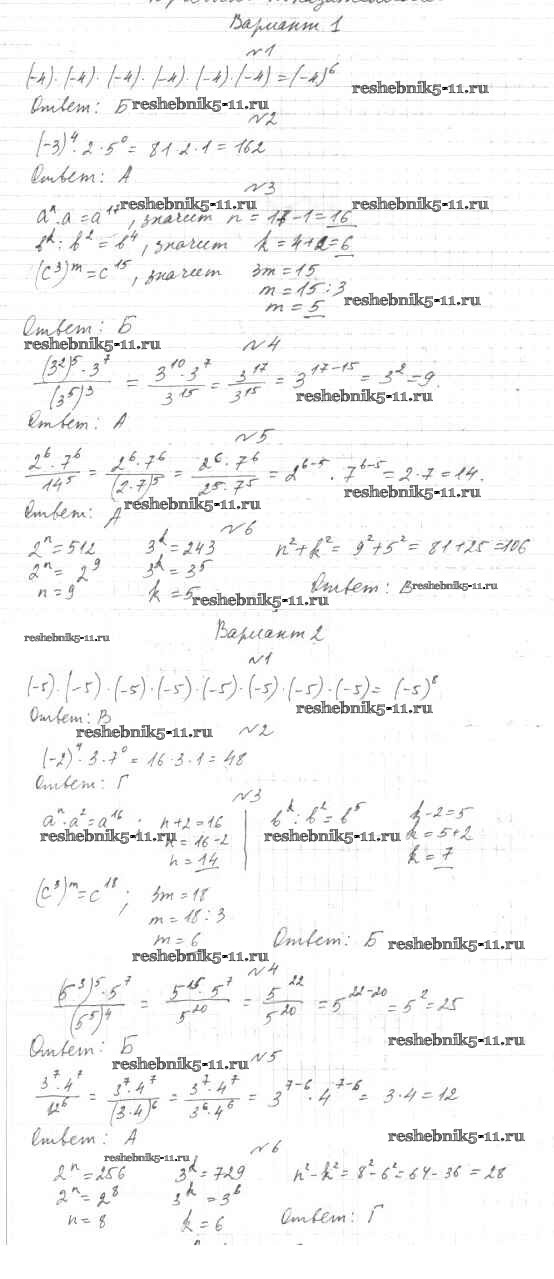 Вариант 1
№1
(-4)·(-4)·(-4)·(-4)·(-4)·(-4)=(-4)⁶
reshebnik5-11.ru
Ответ: Б reshebnik5-11.ru
№2
(-3)⁴·2·5⁰= 81·2·1=162
Ответ: А
№3
reshebnik5-11.ru reshebnik5-11.ru
aⁿ·a=a¹⁷, значит n=17-1=16
bᵏ:b²=b⁴, значит k=4+2=6
(c³)ᵐ=c¹⁵, значит 3m=15
m=15:3
m=5 reshebnik5-11.ru
Ответ: Б
reshebnik5-11.ru №4
(3²)⁵·3⁷/(3⁵)³ = 3¹⁰·3⁷/3¹⁵ = 3¹⁷/3¹⁵ = 3¹⁷⁻¹⁵= 3²=9.
reshebnik5-11.ru
Ответ: А
№5
2⁶·7⁶/14⁵ = 2⁶·7⁶/(2·7)⁵ = 2⁶·7⁶/25·7⁵ = 2⁶⁻⁵·7⁶⁻⁵=2·7=14.
reshebnik5-11.ru
reshebnik5-11.ru
Ответ: А
№6
2ⁿ=512 3ᵏ=243 n²+k²= 9²+5²= 81+25=106
2ⁿ= 2⁹ 3ᵏ=3⁵
n=9 k=5 Ответ: В reshebnik5-11.ru
reshebnik5-11.ru
reshebnik5-11.ru Вариант 2
№1
(-5)·(-5)·(-5)·(-5)·(-5)·(-5)·(-5)·(-5)= (-5)⁸
reshebnik5-11.ru
Ответ: В
reshebnik5-11.ru №2
(-2)⁴·3·7⁰= 16·3·1=48
Ответ: Г
№3
aⁿ·a²=a¹⁶; n+2=16 bᵏ:b²=b⁵ k-2=5
reshebnik5-11.ru n=16-2 reshebnik5-11.ru k=5+2
n=14 k=7
(c³)ᵐ=c¹⁸; 3m=18
m=18:3
m=6 Ответ: Б reshebnik5-11.ru
reshebnik5-11.ru
№4
(5³)⁵·5⁷/(5⁵)⁴ = 5¹⁵·5⁷/5²⁰ = 5²²/5²⁰ =5²²⁻²⁰ =5²=25
reshebnik5-11.ru
Ответ: Б
reshebnik5-11.ru №5
3⁷·4⁷/12⁶ = 3⁷·4⁷/(3·4)⁶ = 3⁷·4⁷/3⁶·4⁶ = 3⁷⁻⁶·4⁷⁻⁶= 3·4=12
Ответ: А reshebnik5-11.ru
reshebnik5-11.ru №6
2ⁿ=256 3ᵏ=729 n²-k²=8²-6²=64-36=28
2ⁿ=2⁸ 3ᵏ=3⁶
n=8 k=6 Ответ: Г